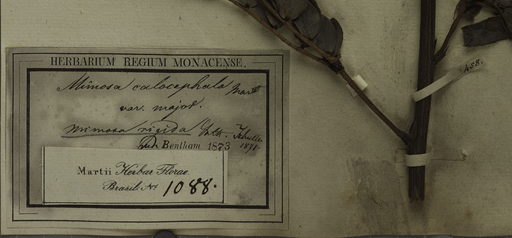 HERBARIUM REGIUM MONACENSE.
Mimosa calocephala Mart.
var. major.
Mimosa rigida Bth.
Bentham 1873
Martii Herbar. Florae
Brasil. No. 1088.
488.